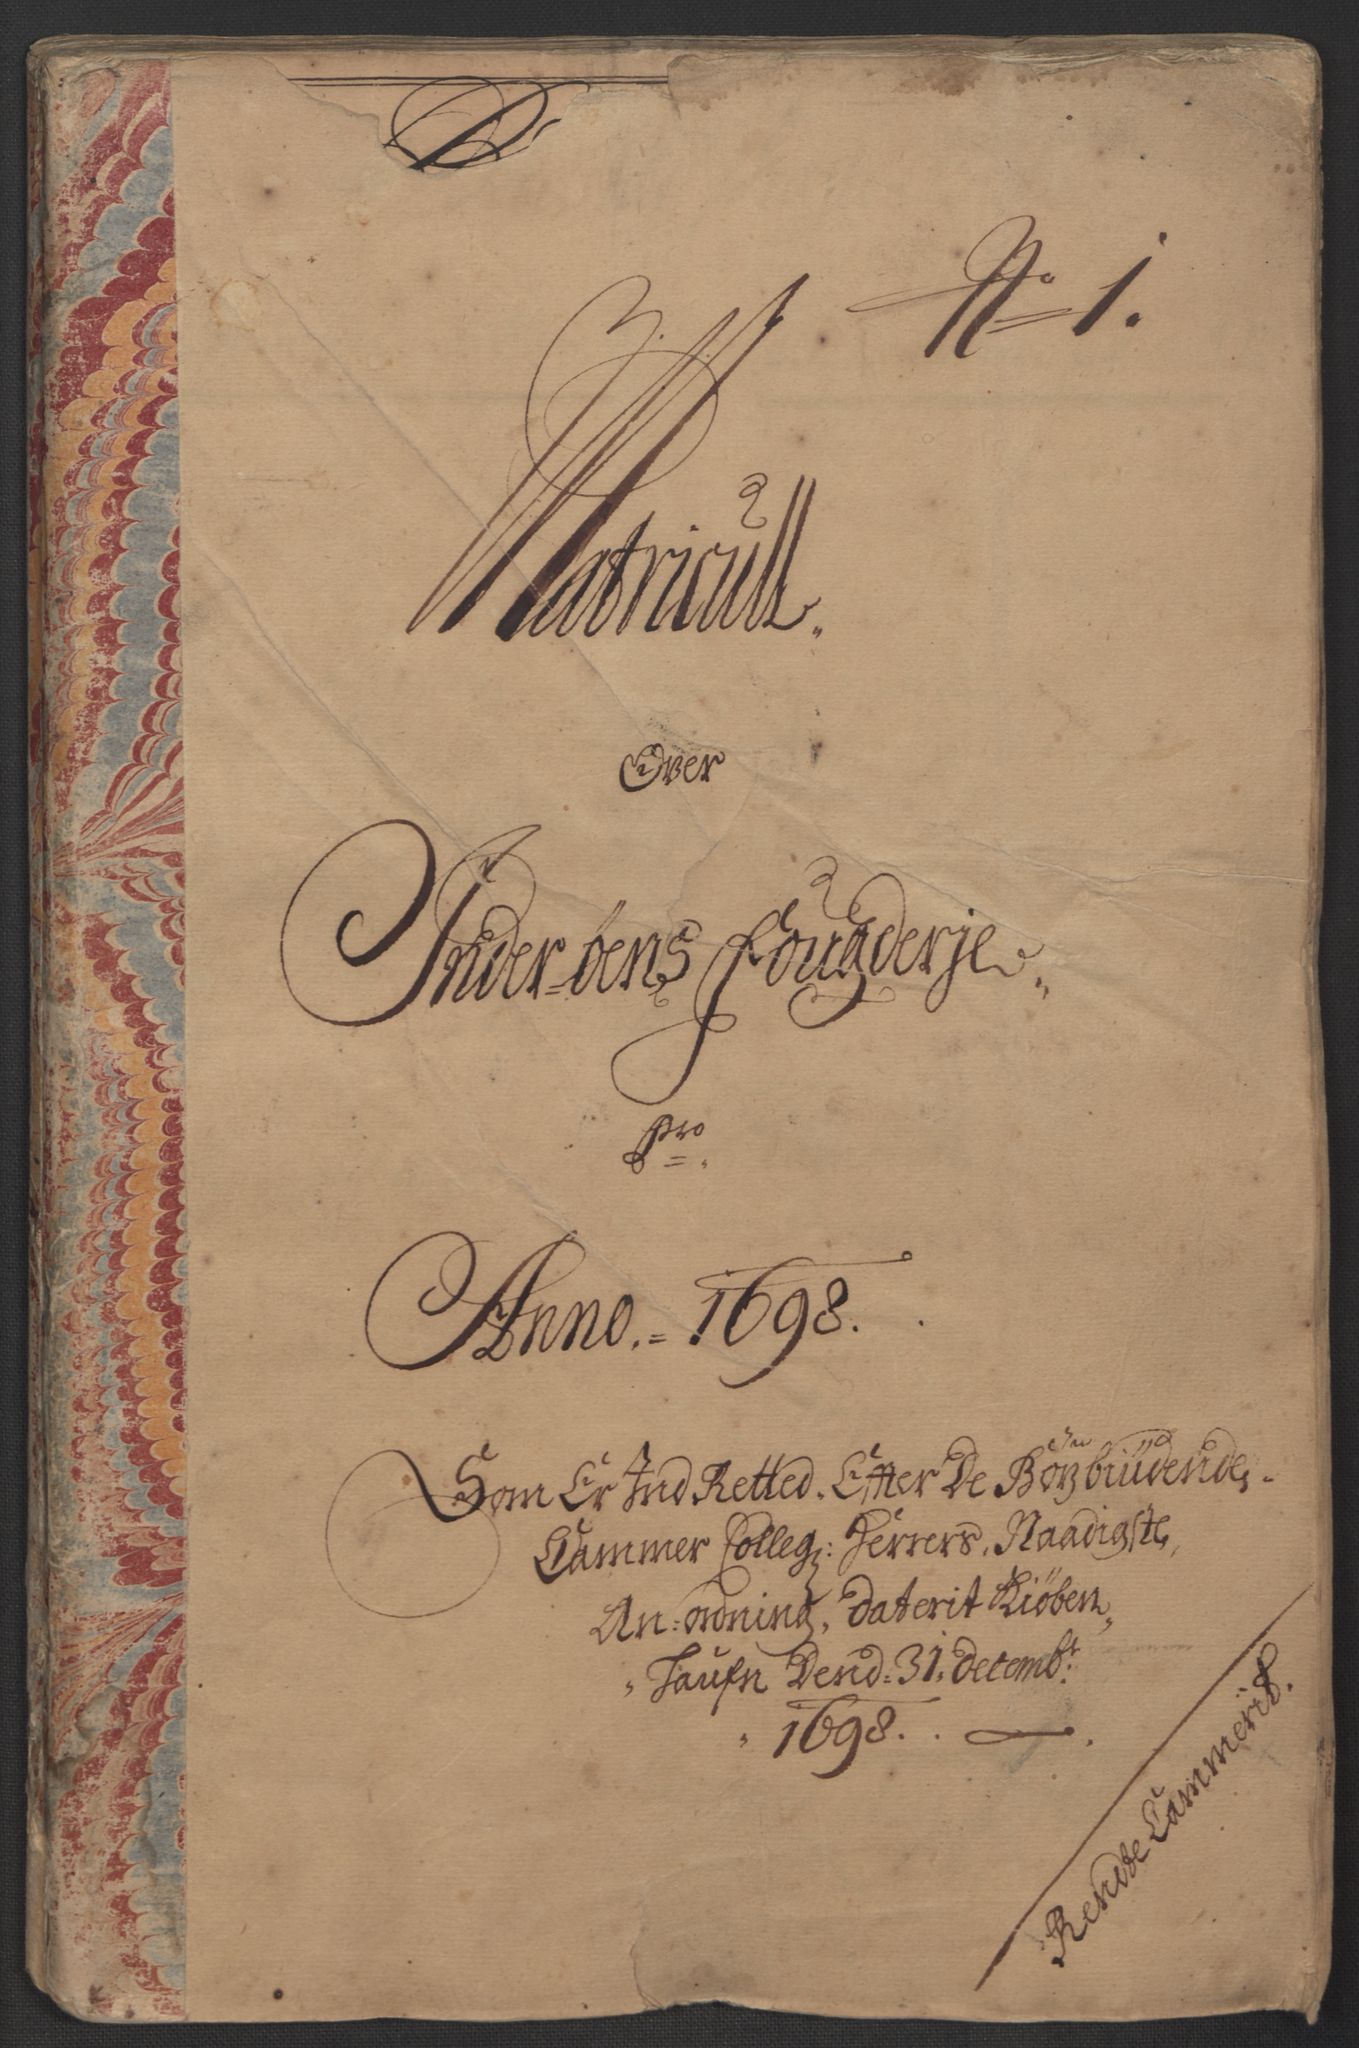 No 1.
Matricull.
Over
Inder-öens Fougderje.
Pro
Anno. 1698.
Som Er Ind Retted. Effter De Höybiüdende
Cammer Colleg: Herrers. Naadigste
An=ordning, daterit Kiöben
haufn Dend: 31. decembr:
1698.
Rendte Cammerit.